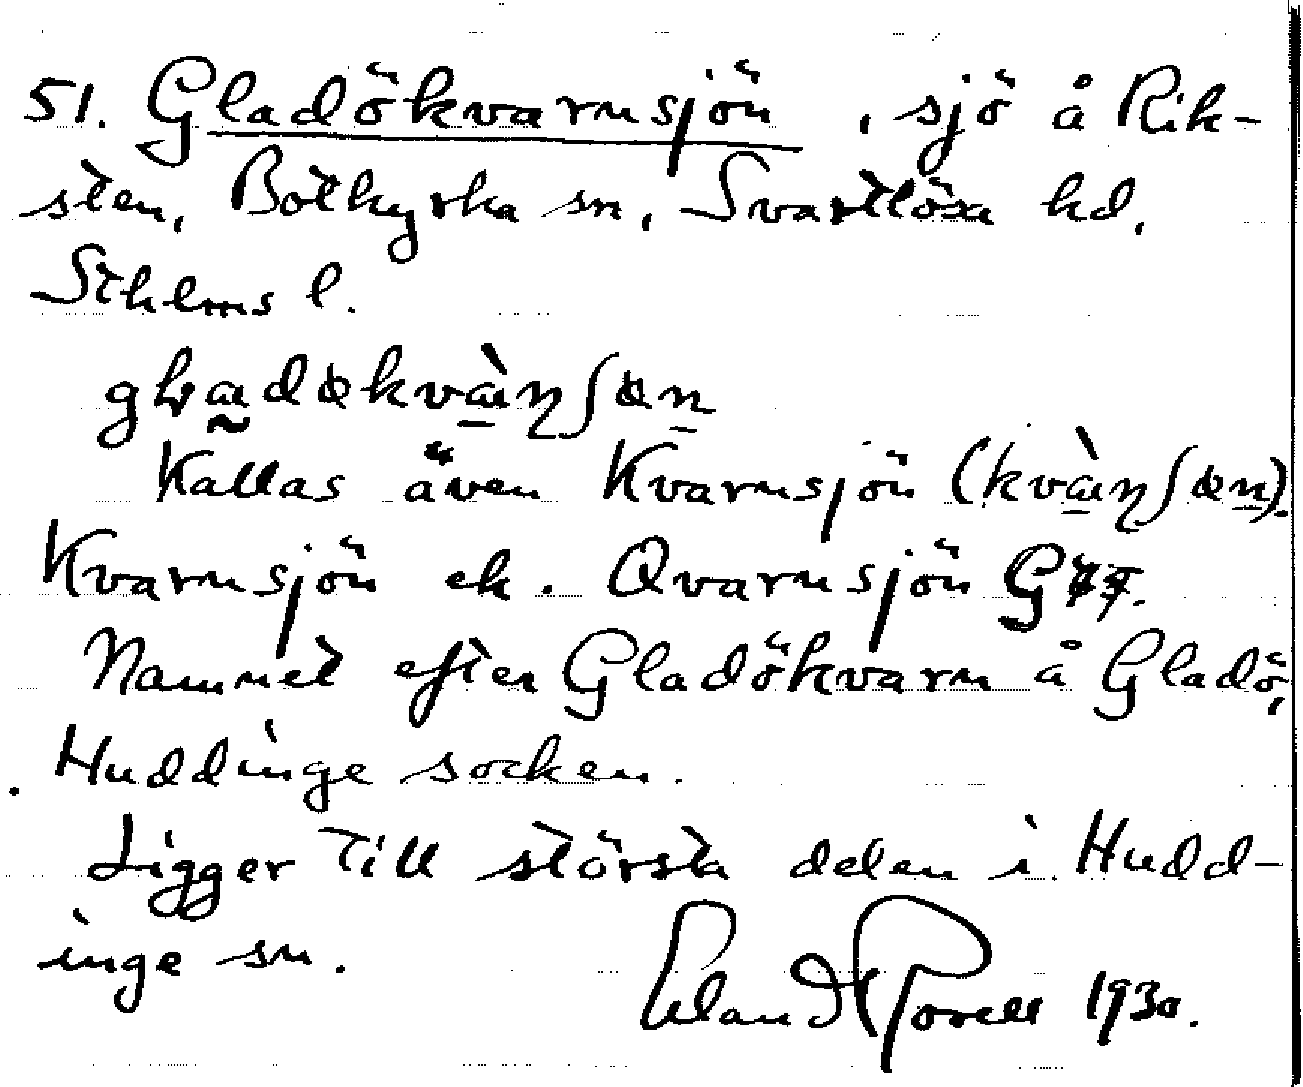 51. Gladökvarnsjön, sjö å Rik-
sten, Botkyrka sn, Svartlösa hd,
Sthlms l.
Kallas även Kvarnsjön
Kvarnsjön ek. Qvarnsjön
Namnet efter Gladökvarn å Gladö,
Huddinge socken.
Ligger till största delen i Hudd-
inge sn.
Erland Rosell 1930.